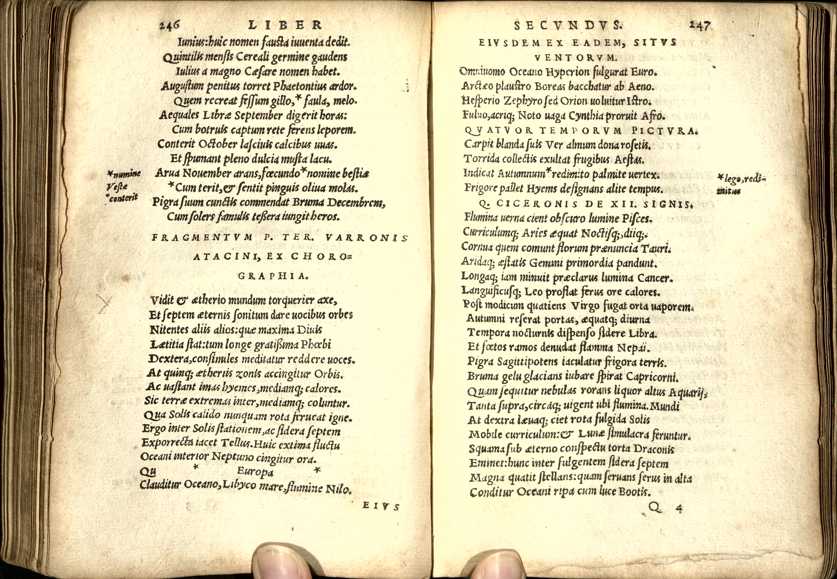 246 LIBER
Iunius: huic nomen fausta iuuenta dedit.
Quintilis mensis Cereali germine gaudens
Iulius a magno Cæsare nomen habet.
Augustum penitus torret Phaetontius ardor.
Quem recreat fessum gillo,* faula, melo.
Aequales Libræ September digerit horas:
Cum botruis captum rete ferens leporem.
Conterit October lasciuis calcibus uuas.
Et spumant pleno dulcia musta lacu.
Arua Nouember arans, fœcundo *nomine bestiæ
*Cum terit, & sentit pinguis oliua molas.
Pigra suum cunctis commendat Bruma Decembrem,
Cum solers famulis tessera iungit heros.
*numine
Vestæ
*conterit
FRAGMENTVM P. TER. VARRONIS
ATACINI, EX CHORO=
GRAPHIA.
Vidit & ætherio mundum torquerier axe,
Et septem æternis sonitum dare uocibus orbes
Nitentes aliis alios: que maxima Diuis
Lætitia stat: tum longe gratissima Phœbi
Dextera, consimiles meditatur reddere uoces.
At quinq; ætheriis zonis accingitur Orbis.
Ac uastant imas hyemes, mediamq; calores.
Sic terræ extremas inter, mediamq; coluntur.
Qua Solis calido nunquam rota ferueat igne.
Ergo inter Solis stationem, ac sidera septem
Exporrecta iacet Tellus. Huic extima fluctu
Oceani interior Neptuno cingitur ora.
Qu * Europa *
Clauditur Oceano, Libyco mare, flumine Nilo.
EIVS
SECVNDVS. 247
EIVSDEM EX EADEM, SITVS
VENTORVM.
Omnimomo Oceano Hyperion fulgurat Euro.
Arctæo plaustro Boreas bacchatur ab Aeno.
Hesperio Zephyro sed Orion uoluitur Istro.
Fuluo, acriq; Noto uaga Cynthia proruit Afro.
QVATVOR TEMPORVM PICTVRA.
Carpit blanda suis Ver almum dona rosetis.
Torrida collectis exultat frugibus Aestas.
Indicat Autumnum *redimito palmite uertex.
Frigore pallet Hyems designans alite tempus.
*lego, redi-
mitus
Q. CICERONIS DE XII. SIGNIS.
Flumina uerna cient obscuro lumine Pisces.
Curriculumq; Aries æquat Noctisq; diiq;.
Cornua quem comunt florum prænuncia Tauri.
Aridaq; æstatis Gemini primordia pandunt.
Longaq; iam minuit præclarus lumina Cancer.
Languificusq; Leo proflat ferus ore calores.
Post modicum quatiens Virgo fugat orta uaporem.
Autumni reserat portas, æquatq; diurna
Tempora nocturnis dispenso sidere Libra.
Et fœtos ramos denudat flamma Nepai.
Pigra Sagittipotens iaculatur frigora terris.
Bruma gelu glacians iubare spirat Capricorni.
Quam sequitur nebulas rorans liquor altus Aquarij;
Tanta supra, circaq; uigent ubi flumina. Mundi
At dextra læuaq; ciet rota fulgida Solis
Mobile curriculum: & Lunæ simulacra feruntur.
Squama sub æterno conspectu torta Draconis
Eminet: hunc inter fulgentem sidera septem
Magna quatit stellans: quam seruans serus in alta
Conditur Oceani ripa cum luce Bootis.
Q 4